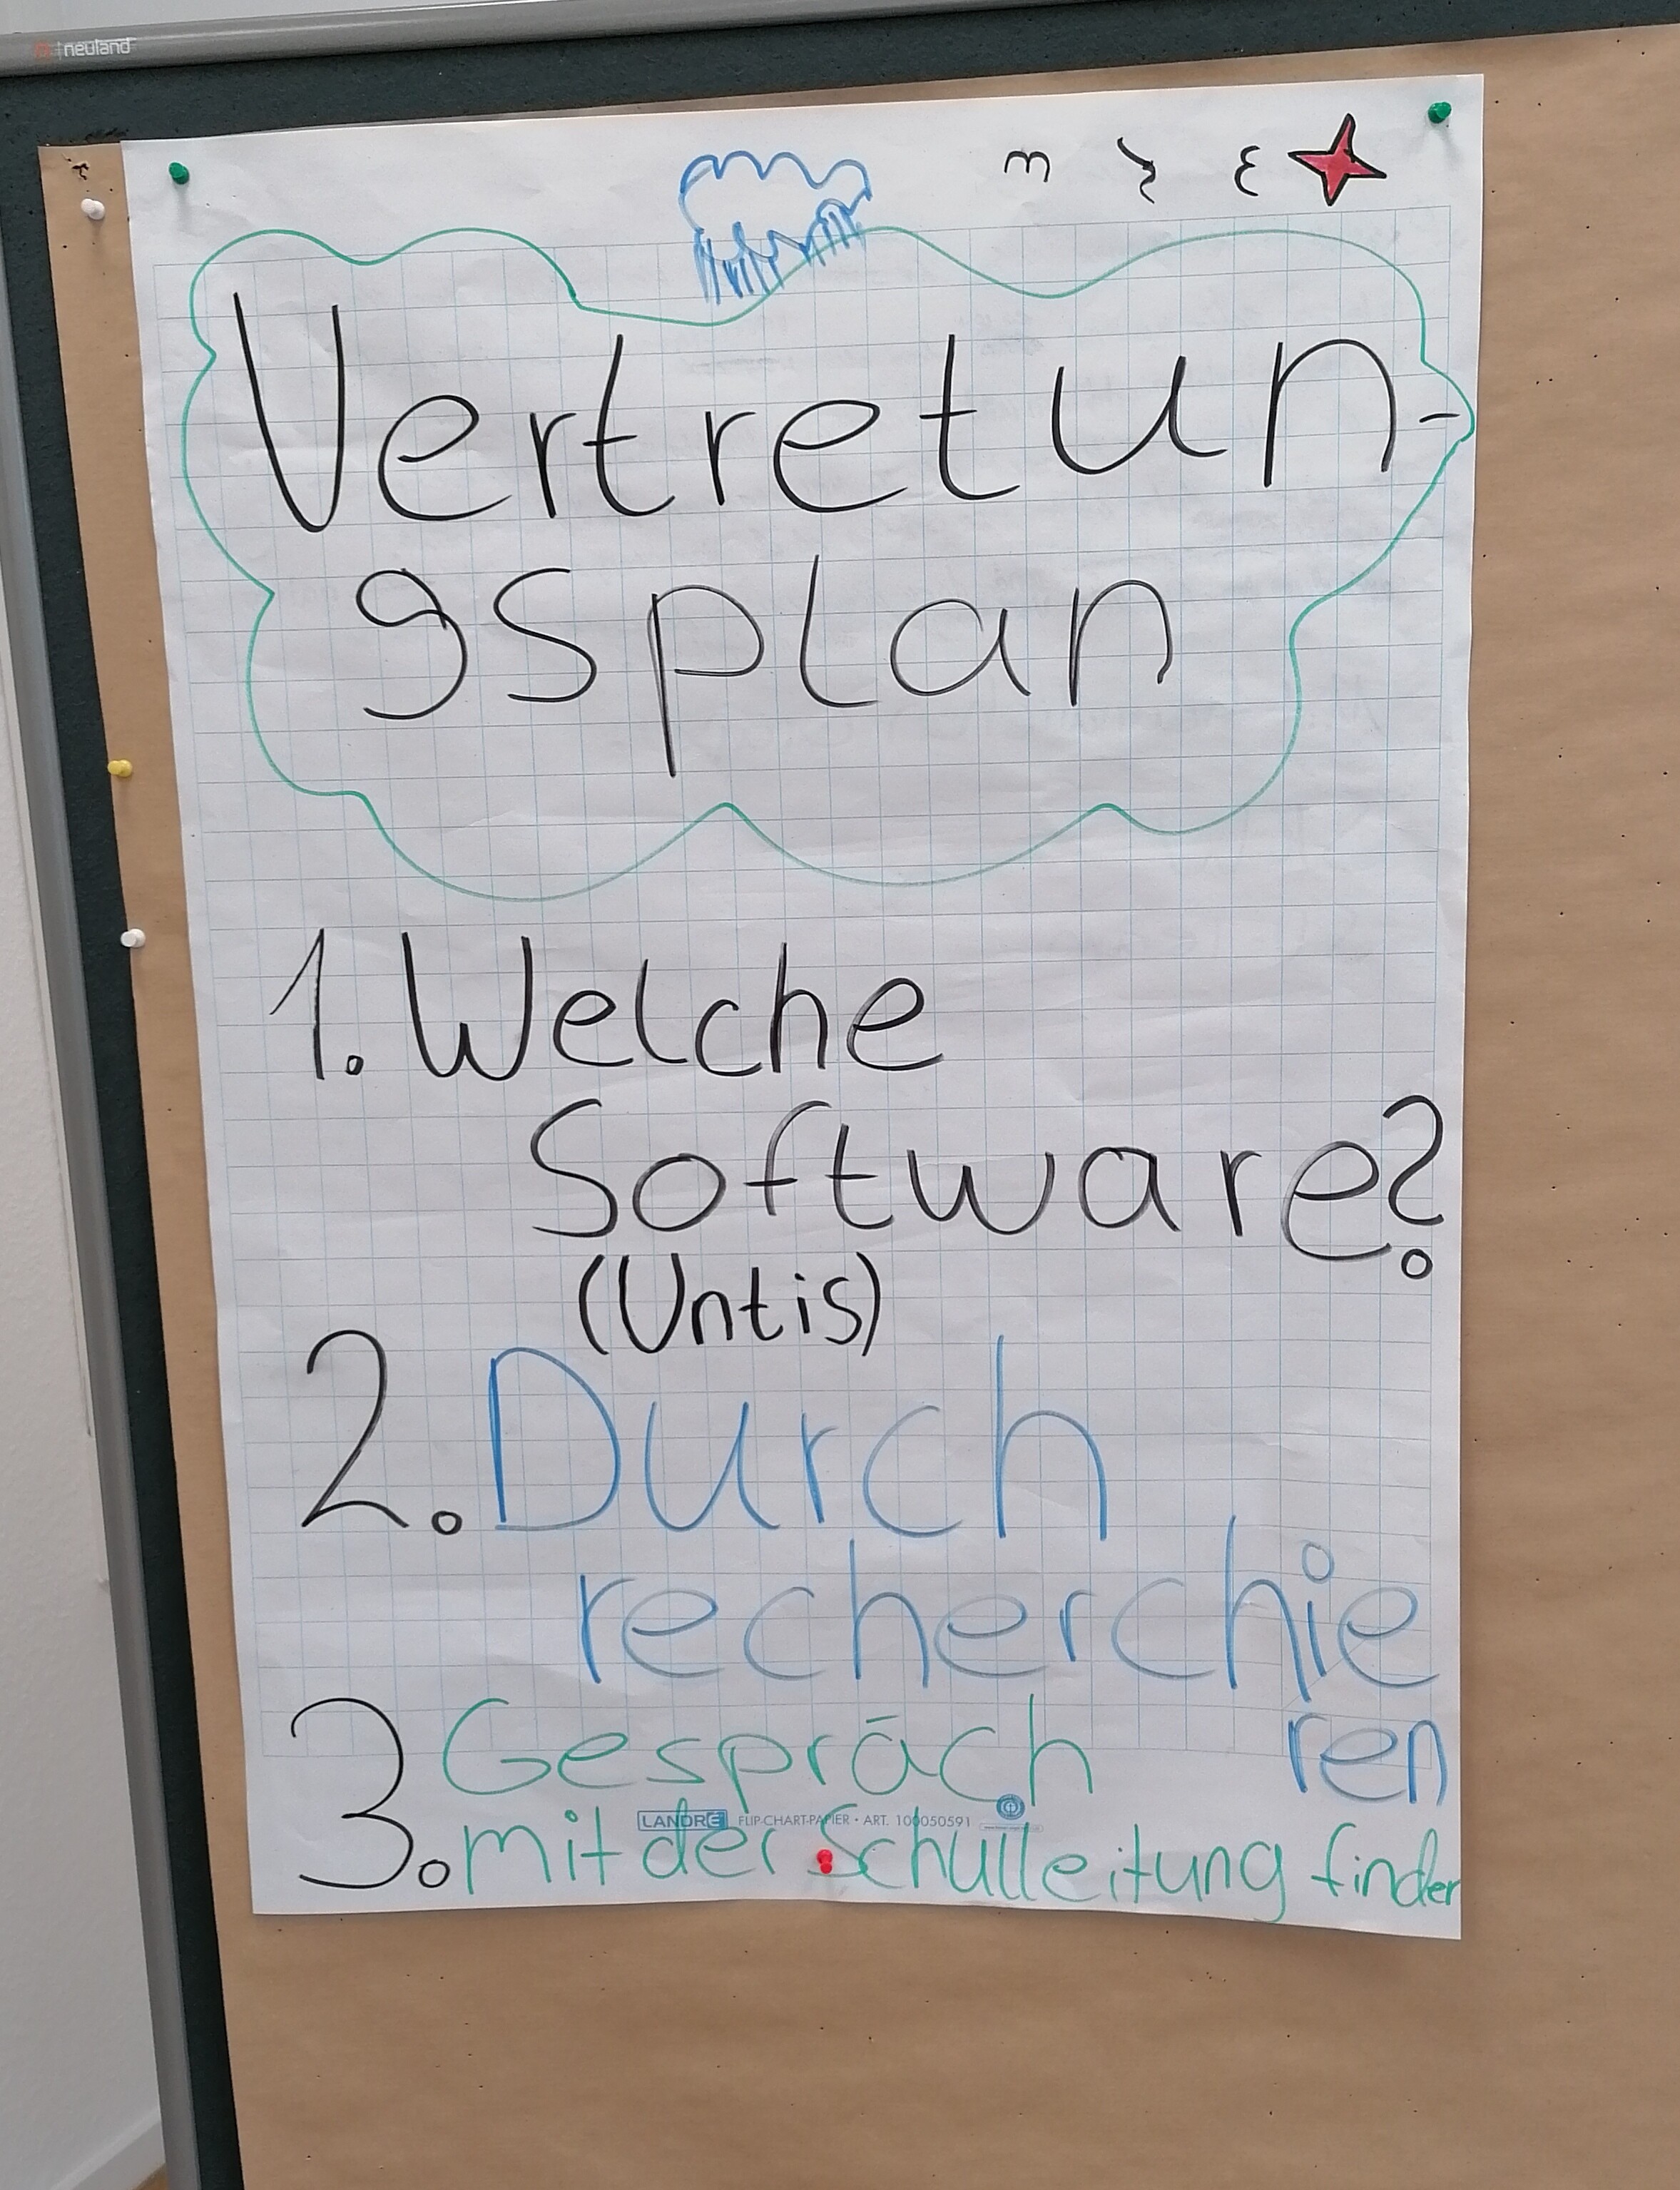 neuland
Vertretun-
gsplan
1. Welche
Software?
(Untis)
2. Durch
recherchie
ren
3. Gespräch
mit der Schulleitung finden
LANDRÉ FLIP-CHART-PAPIER • ART. 100050591